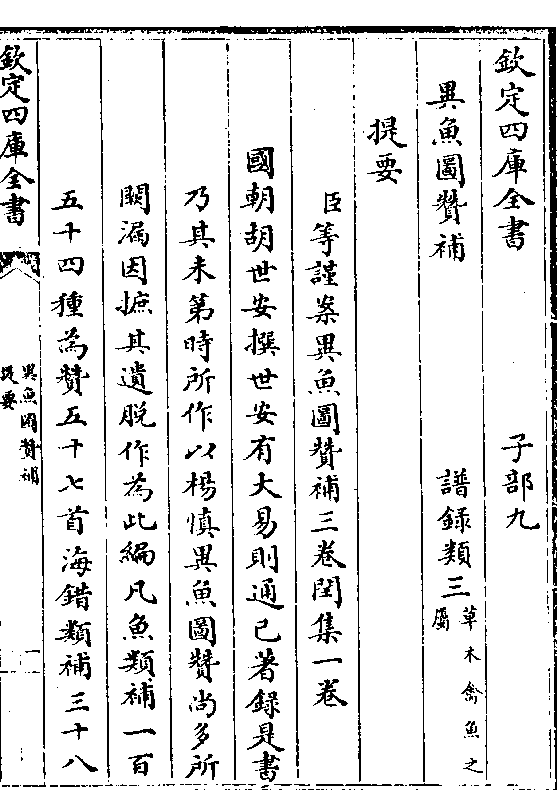 欽定四庫全書　子部九
異魚圖贊補　譜錄類三草木禽魚之屬
提要
臣等謹案異魚圖贊補三卷閏集一卷
國朝胡世安撰世安有大易則通已著錄是書
乃其未第時所作以楊慎異魚圖贊尚多所
闕漏因摭其遺脱作為此編凡魚類補一百
五十四種為贊五十七首海錯類補三十八
欽定四庫全書
異魚圖贊補
提要
一